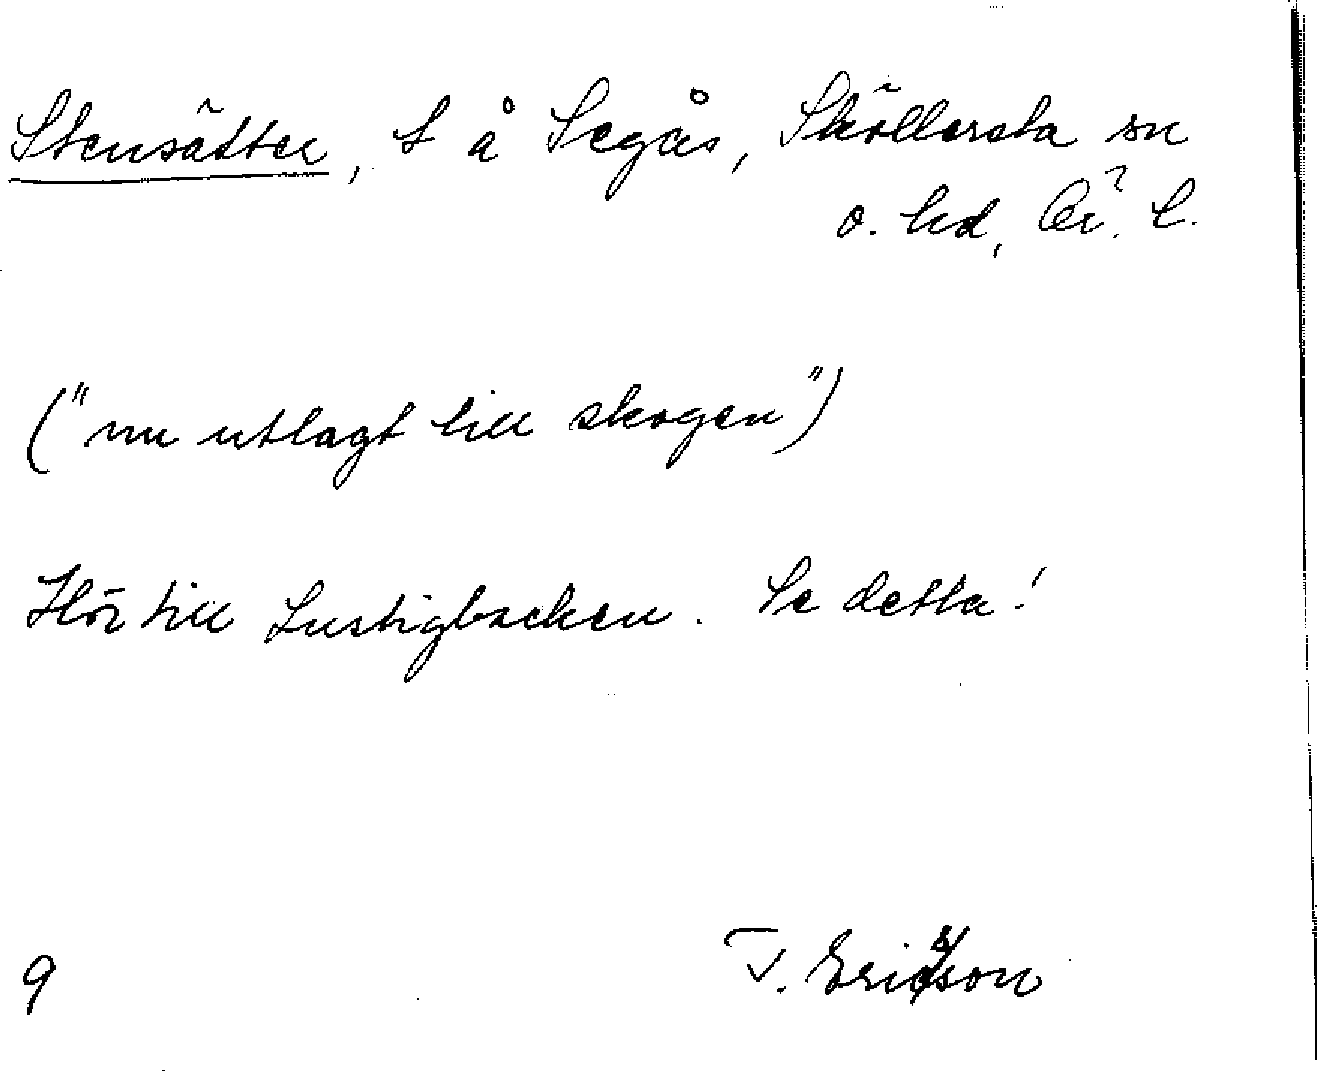 Stensätter, t å Segås, Sköllersta sn
o. hd, Ör. l.
("nu utlagt till skogen")
Hör till Lustigbacken. Se detta!
9 T. Ericsson